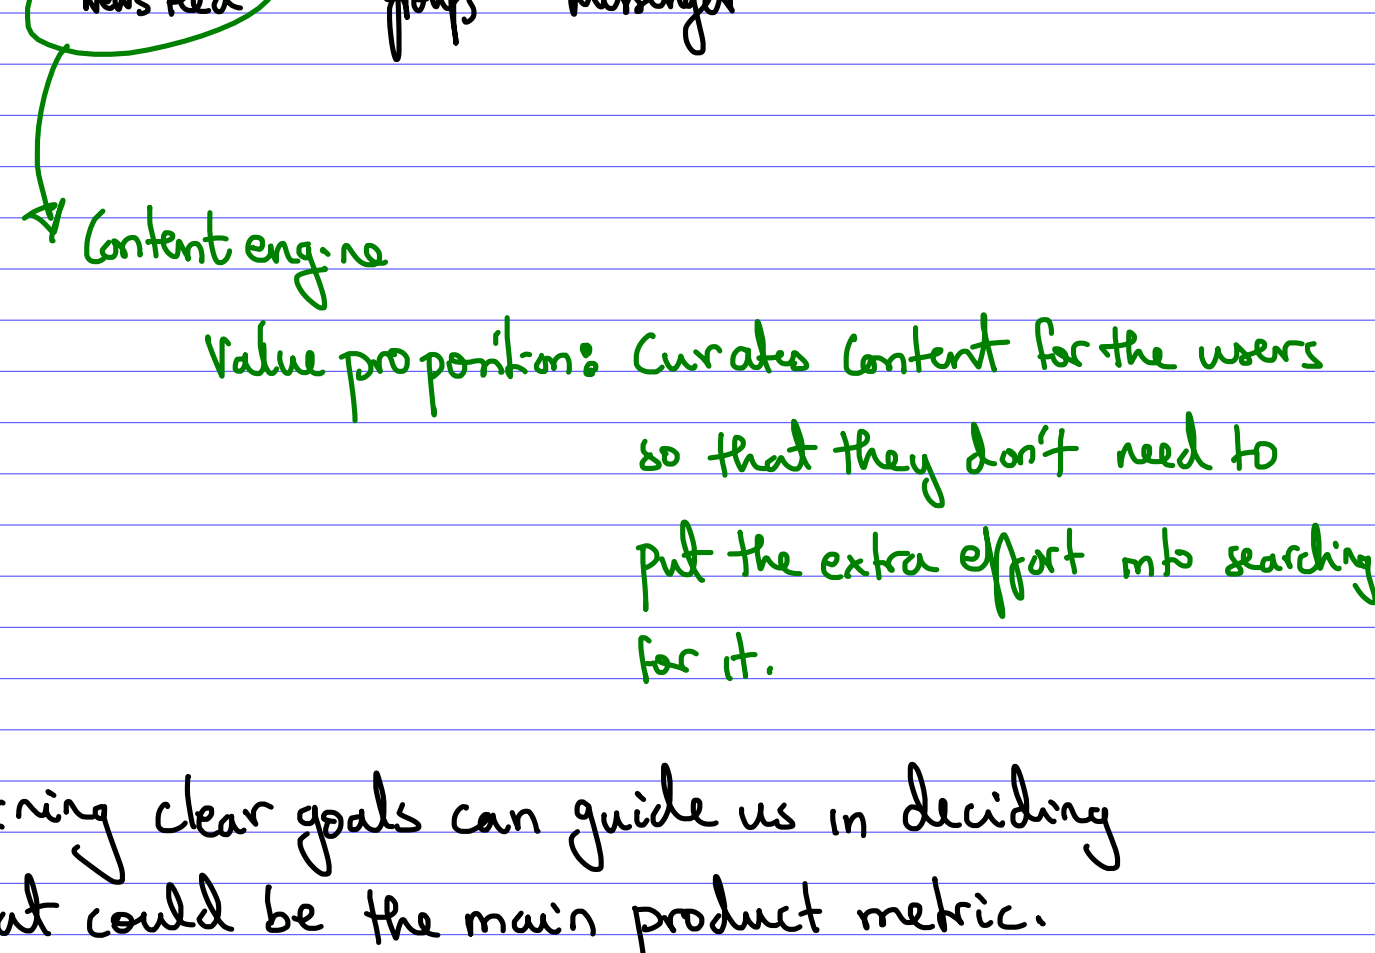 News Feed groups Messenger
Content engine
Value proposition: Curates Content for the users
so that they don't need to
put the extra effort into searching
for it.
ning clear goals can guide us in deciding
at could be the main product metric.